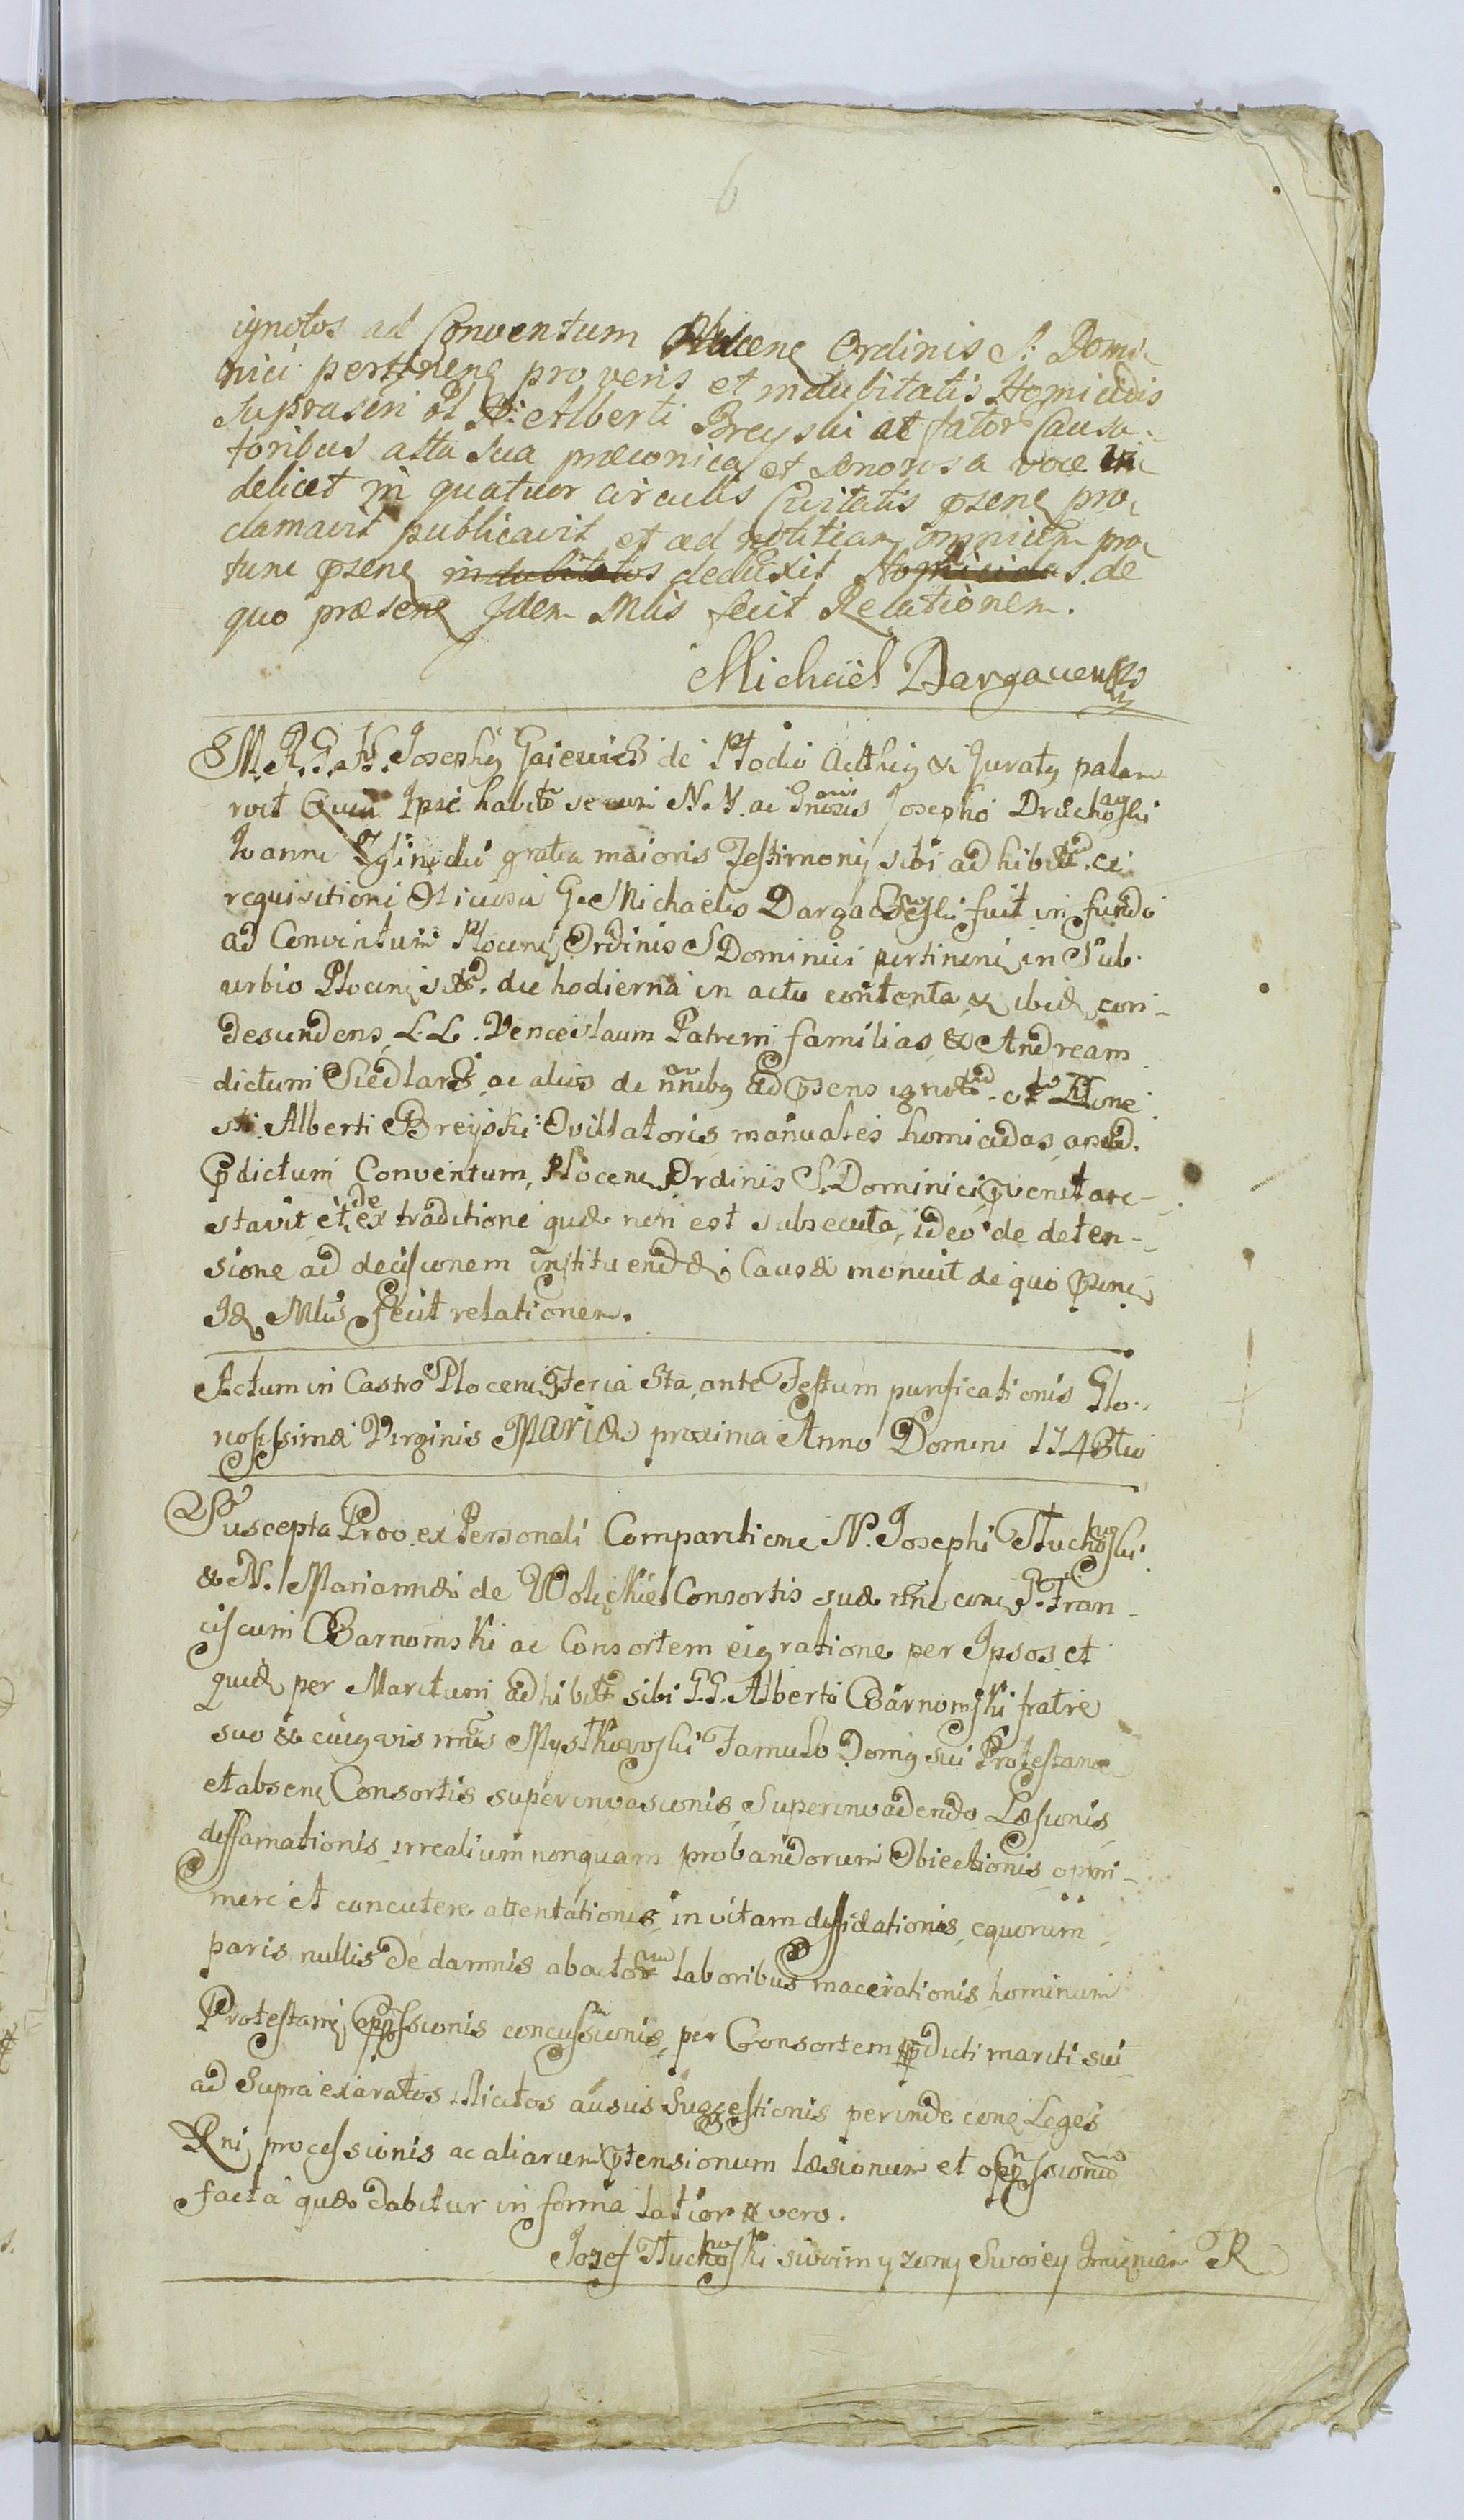 6
ignotos ad Conventum Plocen Ordinis S. Domi
nici pertinen pro veris et indubitatis Homicidis
suprascri ol Alberti Breyski at fator Causa
toribus alta sua præconica et sonorosa voce vi
delicet in quatuor circulis Civitatis psen pro
clamavit publicavit et ad notitiam omnium pro
tunc psen indubitatos deduxit Homicidas. de
quo præsen Idem Mlis fecit Relationem.
Michaël Dargacewski
M. R. G. H. Joseph Gaiewicz de Plocko Authen & Jurat palam
Ipse habit secum N. N. ac Gnosis Josepho Druchowski
Ioanne gratia maioris Testimonij sibi adhibit. ex
requisitione G. Michaelis Dargaczewski fuit in fundo
ad Conventum Plocen Ordinis S Dominici pertinen in Sub
urbio Plocen sit. die hodierna in actu contenta & ibid con-
descendens, LL. Venceslaum Patrem familias & Andream
dictum Siedlarz ac alios de nnibq ad psens ignot. olim Hone
sti Alberti Breyski Ovillatoris manuales homicidas apud.
pdictum Conventum Plocen Ordinis S. Dominici pvent are-
stavit et de ex traditione quæ non est subsecuta, ideo de deten-
sione ad decisionem instituendæ Causæ monuit de quo psens
Id Mlis fecit relationem.
Actum in Castro Plocen Feria 3tia ante Festum purificationis Glo-
riosissimæ Virginis MARIÆ proxima Anno Domini 174
Suscepta Pro ex Personali Comparitione N. Josephi Tłuchowski
& N. Mariannæ de Consortis suæ cone G. Fran-
ciscum Barnomski ac Consortem eiq ratione per Ipsos et
quid per Maritum adhibit sibi G. G. Alberto Barnomski fratre
suo & cuiqvis Mystkowski Famulo Domq sui Protestan
et absen Consortis superinvasionis Superinvadendo Læsionis
diffamationis irrealium nonquam probandorum Obiectionis oppri-
mere et concutere attentationis, in vitam diffidationis, equorum
paris nullis de damnis abactorum laboribus macerationis hominum
Protestan oppssionis concussionis, per Consortem pdicti mariti sui
ad supra exaratos illicitos ausus Suggestionis perinde cone Leges
Rni processionis ac aliarum ptensionum læsionum et oppssionum
facta quæ dabitur in forma latiori vero.
Jozef Tłuchowski swoim y zony Swoiey Imieniem R